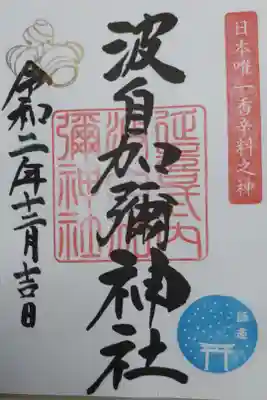 日本唯一香辛料之神
波自加彌神社
延喜式内
彌神社
令和二年十二月吉日
師走